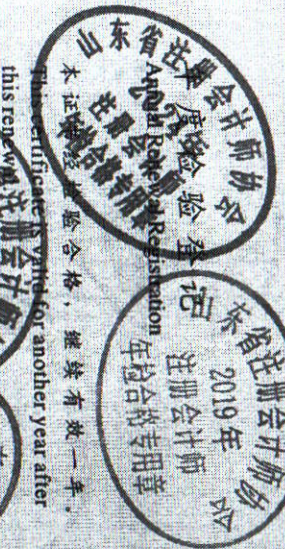 年度检验登记
Annual Renewal Registration
本证书经检验合格，继续有效一年。
This certificate is valid for another year after
this renewal
山东省注册会计师协会
注册会计师
年检合格专用章
山东省注册会计师协会
2019年
注册会计师
年检合格专用章
注册会计师